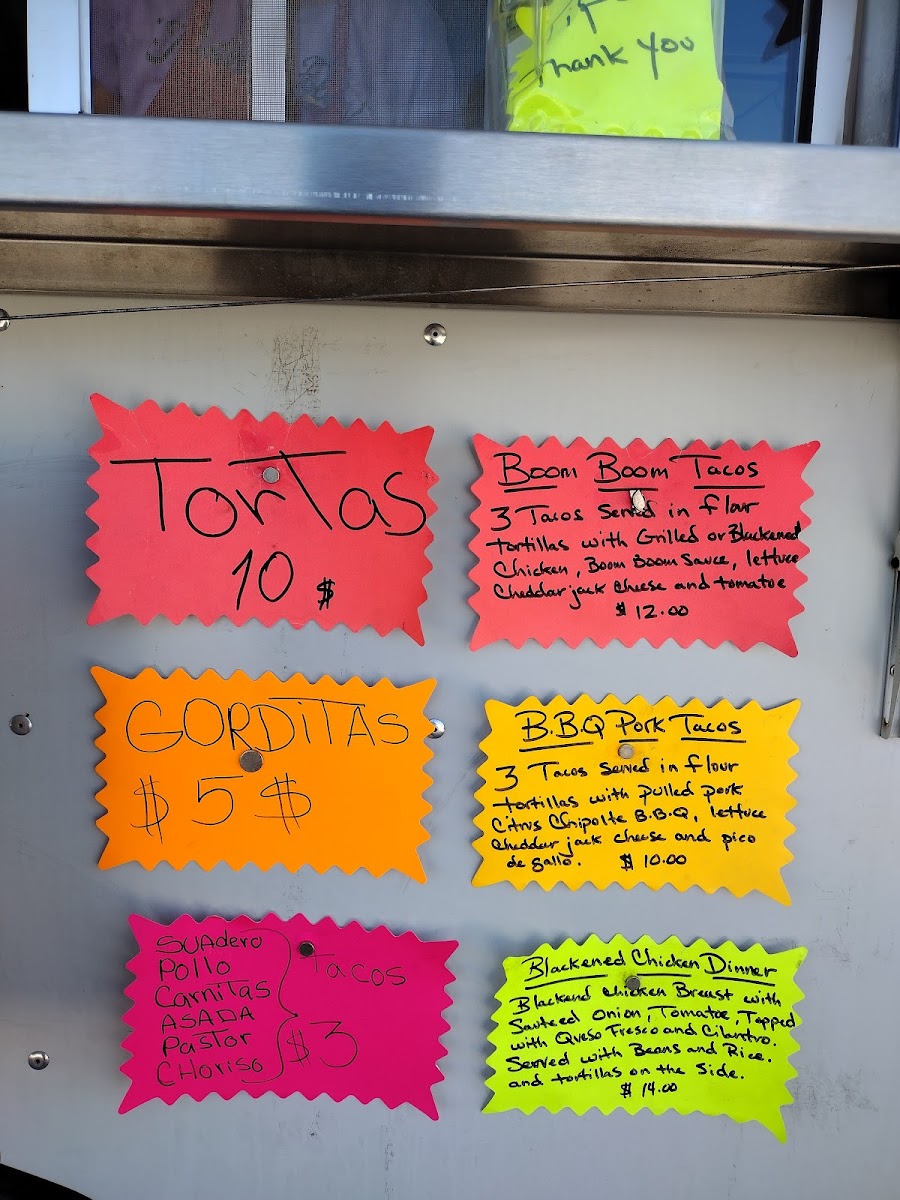 Thank You
TorTas
10 $
Boom Boom Tacos
3 Tacos Served in flour
tortillas with Grilled or Blackened
Chicken, Boom Boom Sauce, lettuce
Cheddar jack cheese and tomatoe
$ 12.00
GORDiTAS
$ 5 $
B.B.Q Pork Tacos
3 Tacos Served in flour
tortillas with pulled pork
Citrus Chipolte B.B.Q, lettuce
Cheddar jack cheese and pico
de gallo. $ 10.00
SUAdero
Pollo
CarniTas
ASADA
PasTor
CHoriso
Tacos
$3
Blackened Chicken Dinner
Blackend chicken Breast with
Sauteed onion, Tomatoe, Topped
with Queso Fresco and Cilantro.
Served with Beans and Rice.
and tortillas on the Side.
$ 14.00